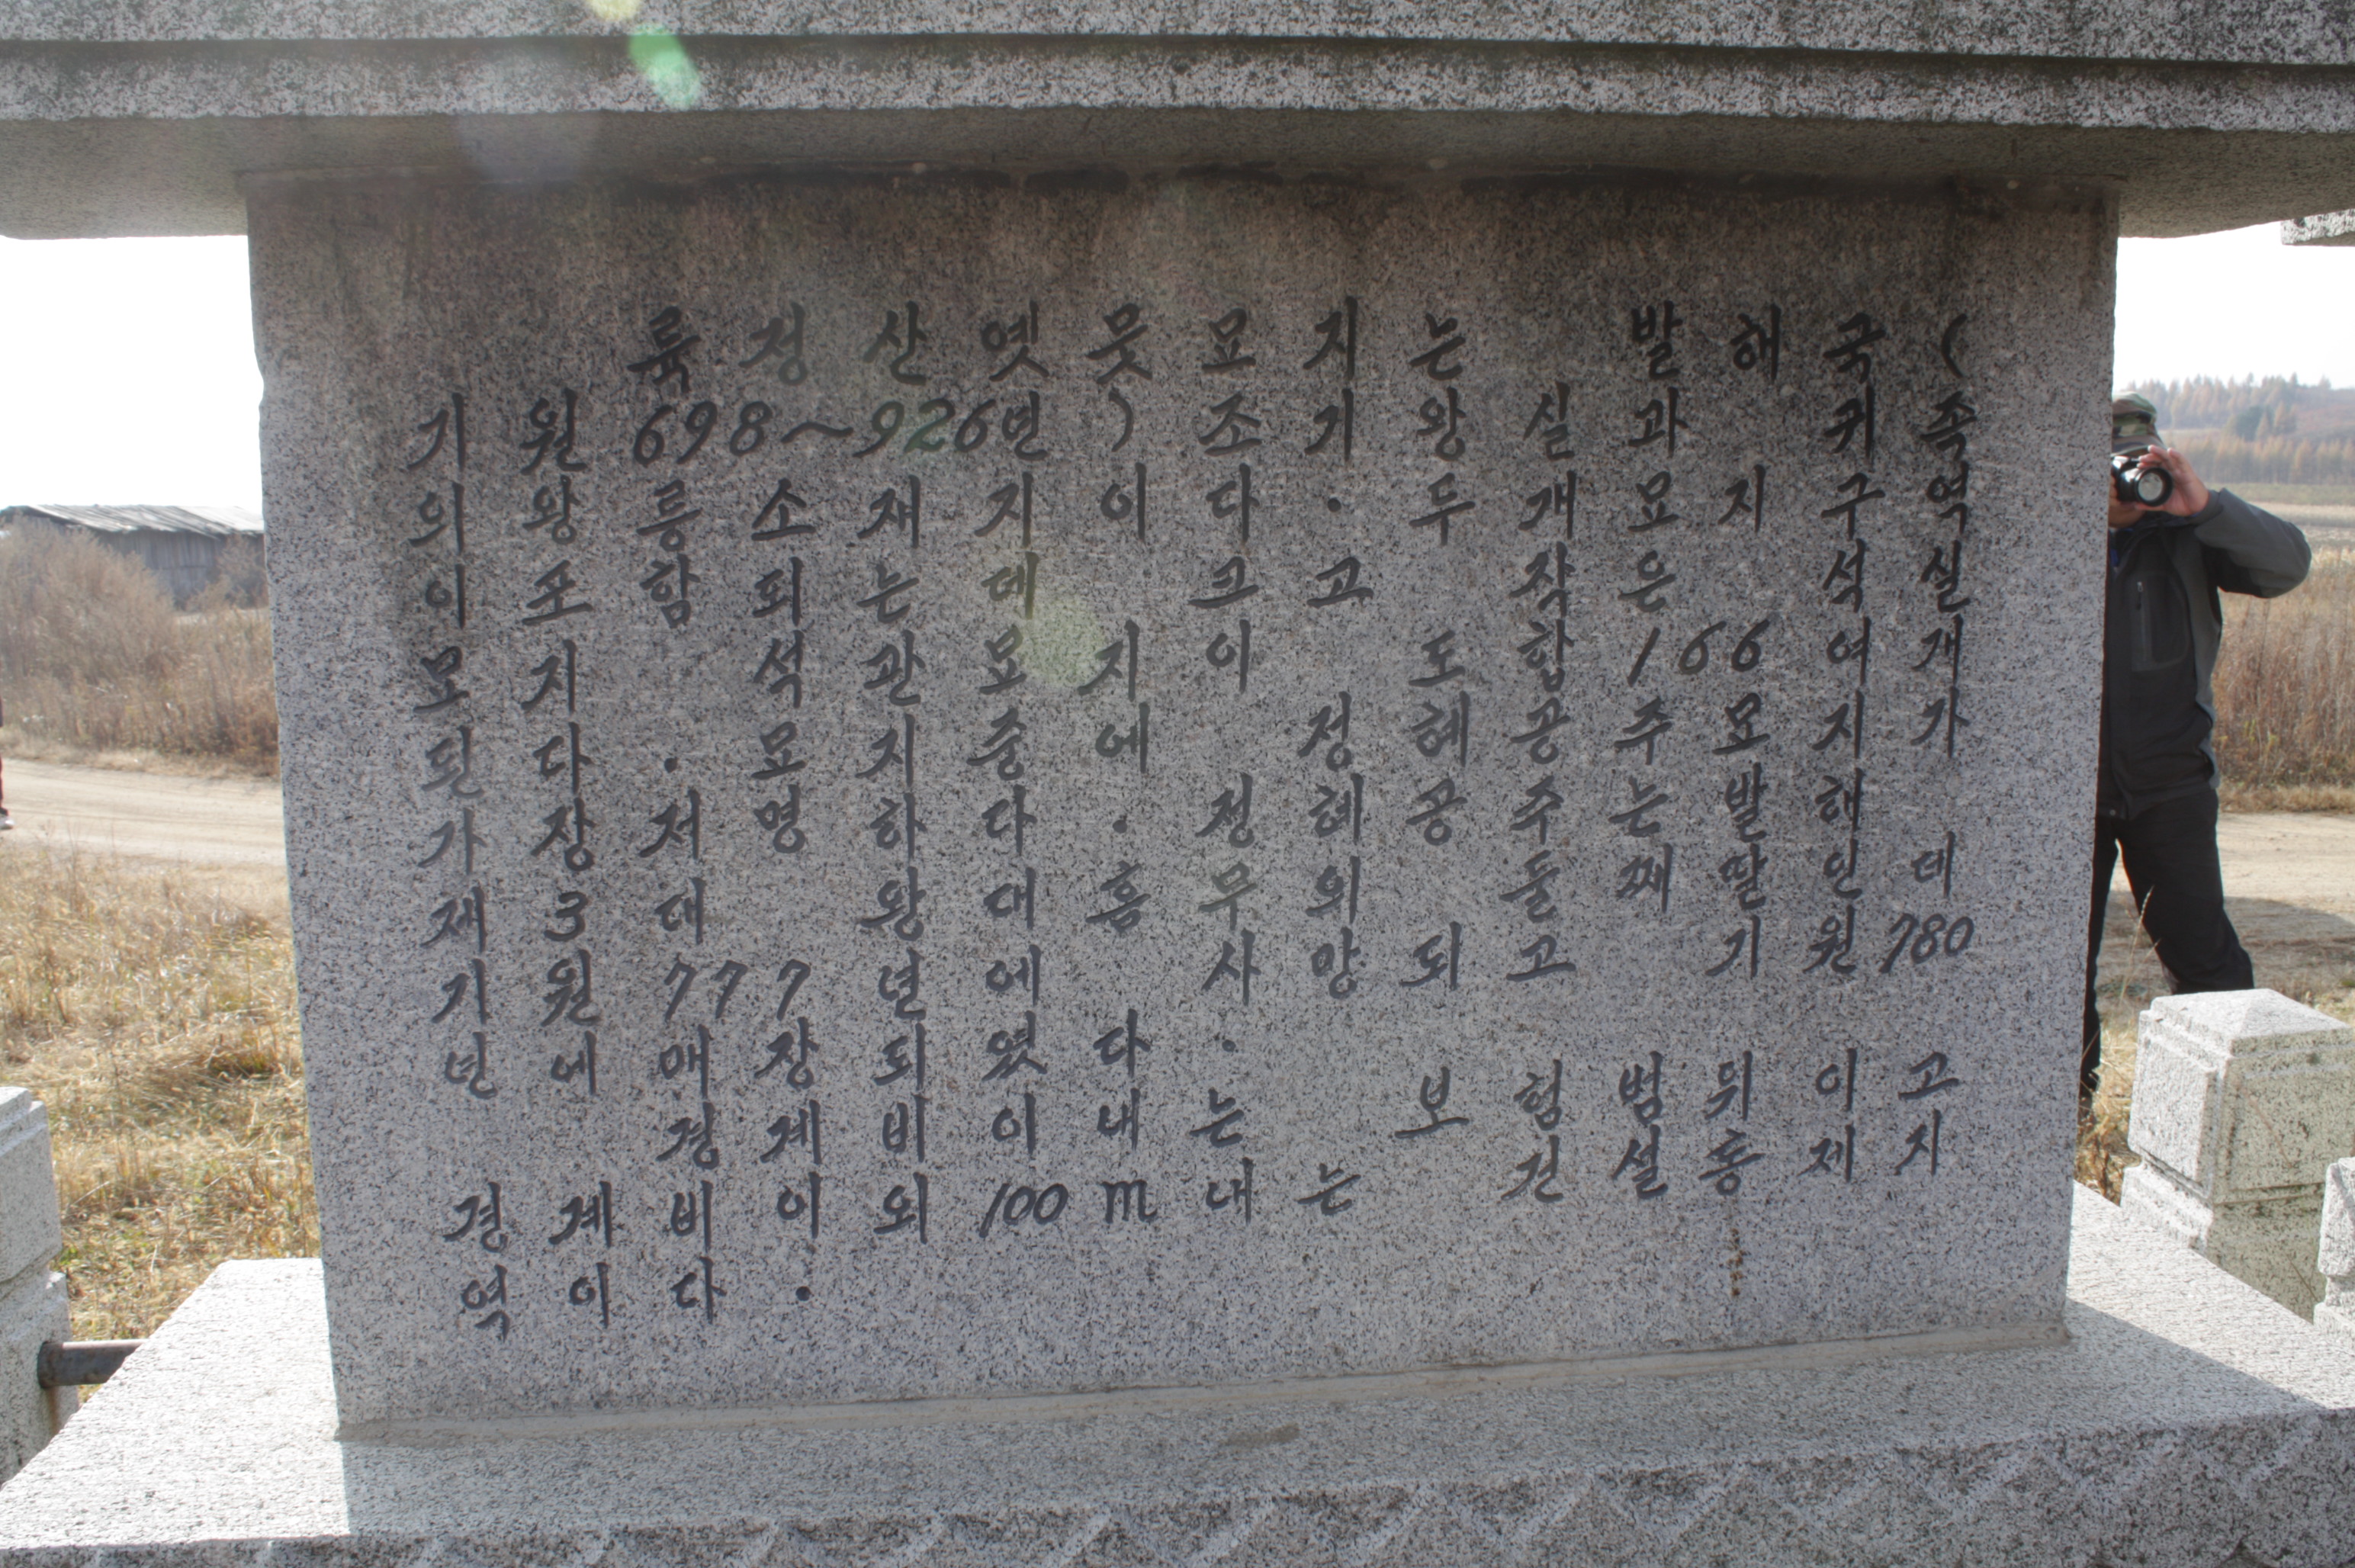 륙정산옛뭇묘지는 발해국(
기원698~926년)조기왕실과귀족
의왕릉소재지이다·두개묘지구역
이포함되는데 크고 작은 석실
묘지·석관묘지이 도합166여개
된다·묘지중에 정혜공주묘지가
가장저명하다·정혜공주는발해
재3대왕대흠무의둘째딸인데
기원777년에사망되고 기원780
년에매장되였다·
경계비이내는 보형범위이고
경계비이외100m내는 건설통제지
역이다·